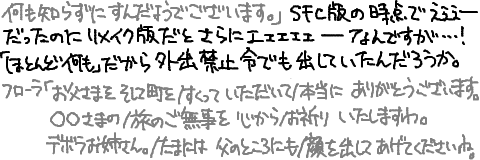 何も知らずにすんだようでございます。」 SFC版の時点でえぇぇー
だったのにリメイク版だとさらにエェエェェーなんですが…!
「ほとんど何も」だから外出禁止令でも出していたんだろうか。
フローラ「お父さまを そして町を/すくって いただいて/本当に ありがとうございます。
○○さまの/旅のご無事を 心から/お祈り いたしますわ。
デボラお姉さん。/たまには 父のところにも/顔を出して あげてくださいね。